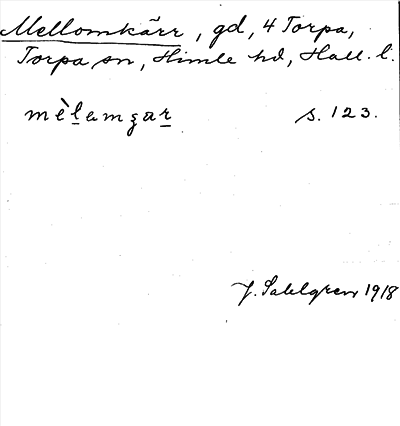 Mellomkärr, gd, 4 Torpa,
Torpa sn, Himle hd, Hall. l.
mèlamʒar s. 123.
J. Sahlgren 1918